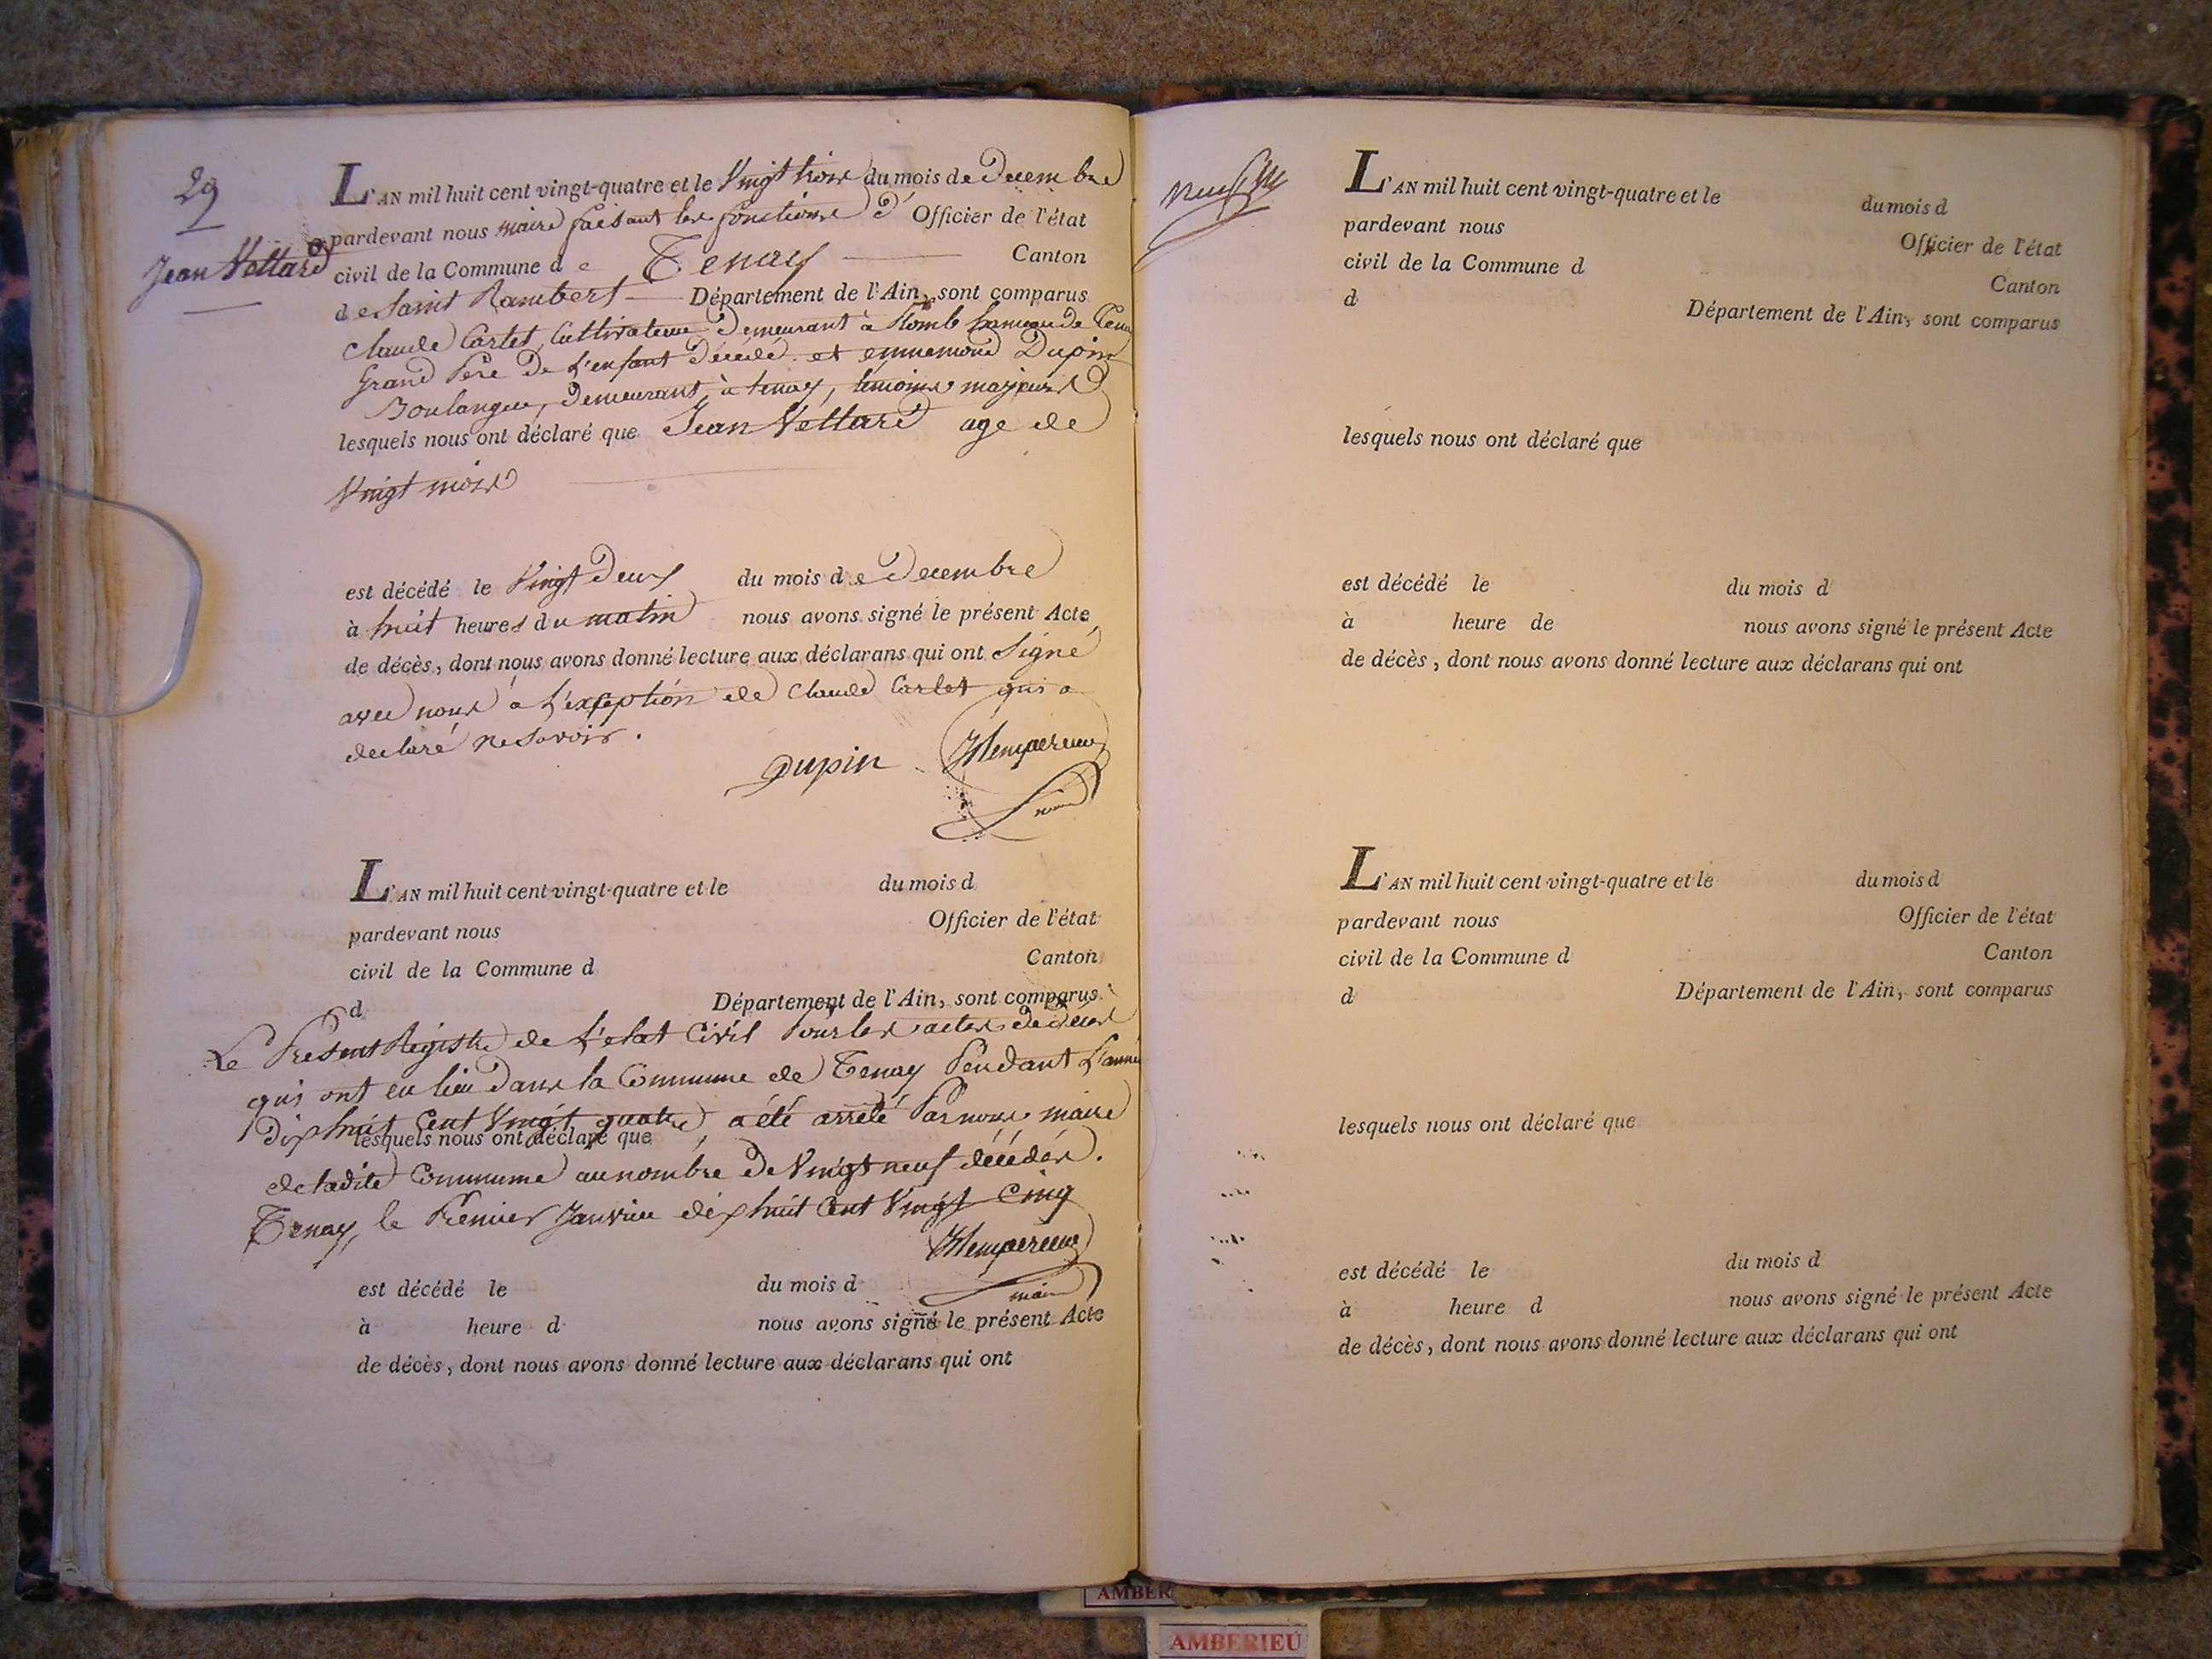 29
Jean Vettard
L'AN mil huit cent vingt-quatre et le Vingt trois du mois de Decembre
pardevant nous maire faisant les fonctions d' Officier de l'état
civil de la Commune de Tenay Canton
de Saint Rambert Département de l'Ain, sont comparus
Claude Carlet, Cultivateur Demeurant à hameau de
Grand Pere De L'enfant Décédé et ennemond Dupin
Boulanger, Demeurant à tenay, temoins majeurs
lesquels nous ont déclaré que Jean Vettard age de
Vingt mois
est décédé le Vingt Deux du mois de Decembre
à huit heures du matin nous avons signé le présent Acte
de décès, dont nous avons donné lecture aux déclarans qui ont Signé
avec nous à L'exception de Claude Carlet qui a
declaré ne Savoir.
Dupin
maire
L'AN mil huit cent vingt-quatre et le du mois d
pardevant nous Officier de l'état
civil de la Commune d Canton
d Département de l'Ain, sont comparus
Le Present Régistre de L'etat Civil Pour les actes de deces
qui ont eu lieu Dans la Commune de Tenay Pendant L'année
Dix huit Cent Vingt quatre, a été arrêté Par nous maire
lesquels nous ont déclaré que
de ladite Commune au nombre De Vingt neuf décédés.
Tenay, le Premier Janvier dix huit Cent Vingt Cinq
maire
est décédé le du mois d
à heure d nous avons signé le présent Acte
de décès, dont nous avons donné lecture aux déclarans qui ont
L'AN mil huit cent vingt-quatre et le du mois d
pardevant nous Officier de l'état
civil de la Commune d Canton
d Département de l'Ain, sont comparus
lesquels nous ont déclaré que
est décédé le du mois d
à heure de nous avons signé le présent Acte
de décès, dont nous avons donné lecture aux déclarans qui ont
L'AN mil huit cent vingt-quatre et le du mois d
pardevant nous Officier de l'état
civil de la Commune d Canton
d Département de l'Ain, sont comparus
lesquels nous ont déclaré que
est décédé le du mois d
à heure d nous avons signé le présent Acte
de décès, dont nous avons donné lecture aux déclarans qui ont
AMBER
AMBERIEU